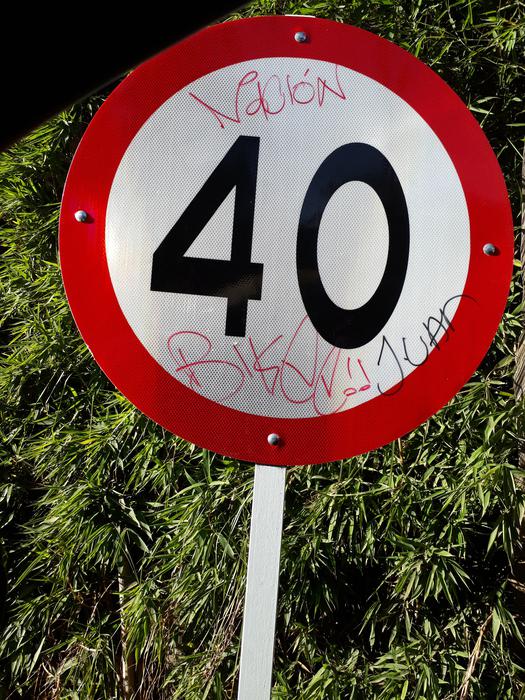 Nación
40
Biker!!
Juan